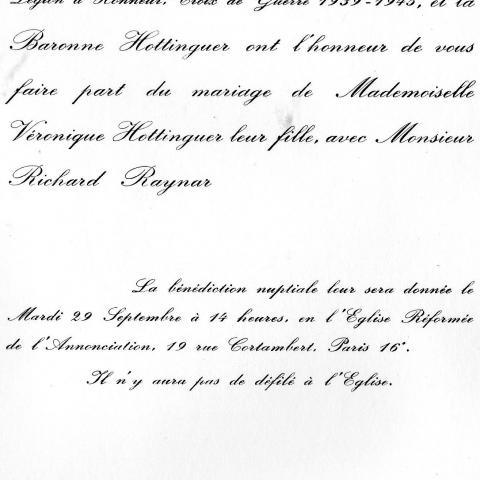 Légion d'Honneur, Croix de Guerre 1939-1945, et la
Baronne Hottinguer ont l'honneur de vous
faire part du mariage de Mademoiselle
Véronique Hottinguer leur fille, avec Monsieur
Richard Raynar
La bénédiction nuptiale leur sera donnée le
Mardi 29 Septembre à 14 heures, en l'Eglise Réformée
de l'Annonciation, 19 rue Cortambert, Paris 16e.
Il n'y aura pas de défilé à l'Eglise.